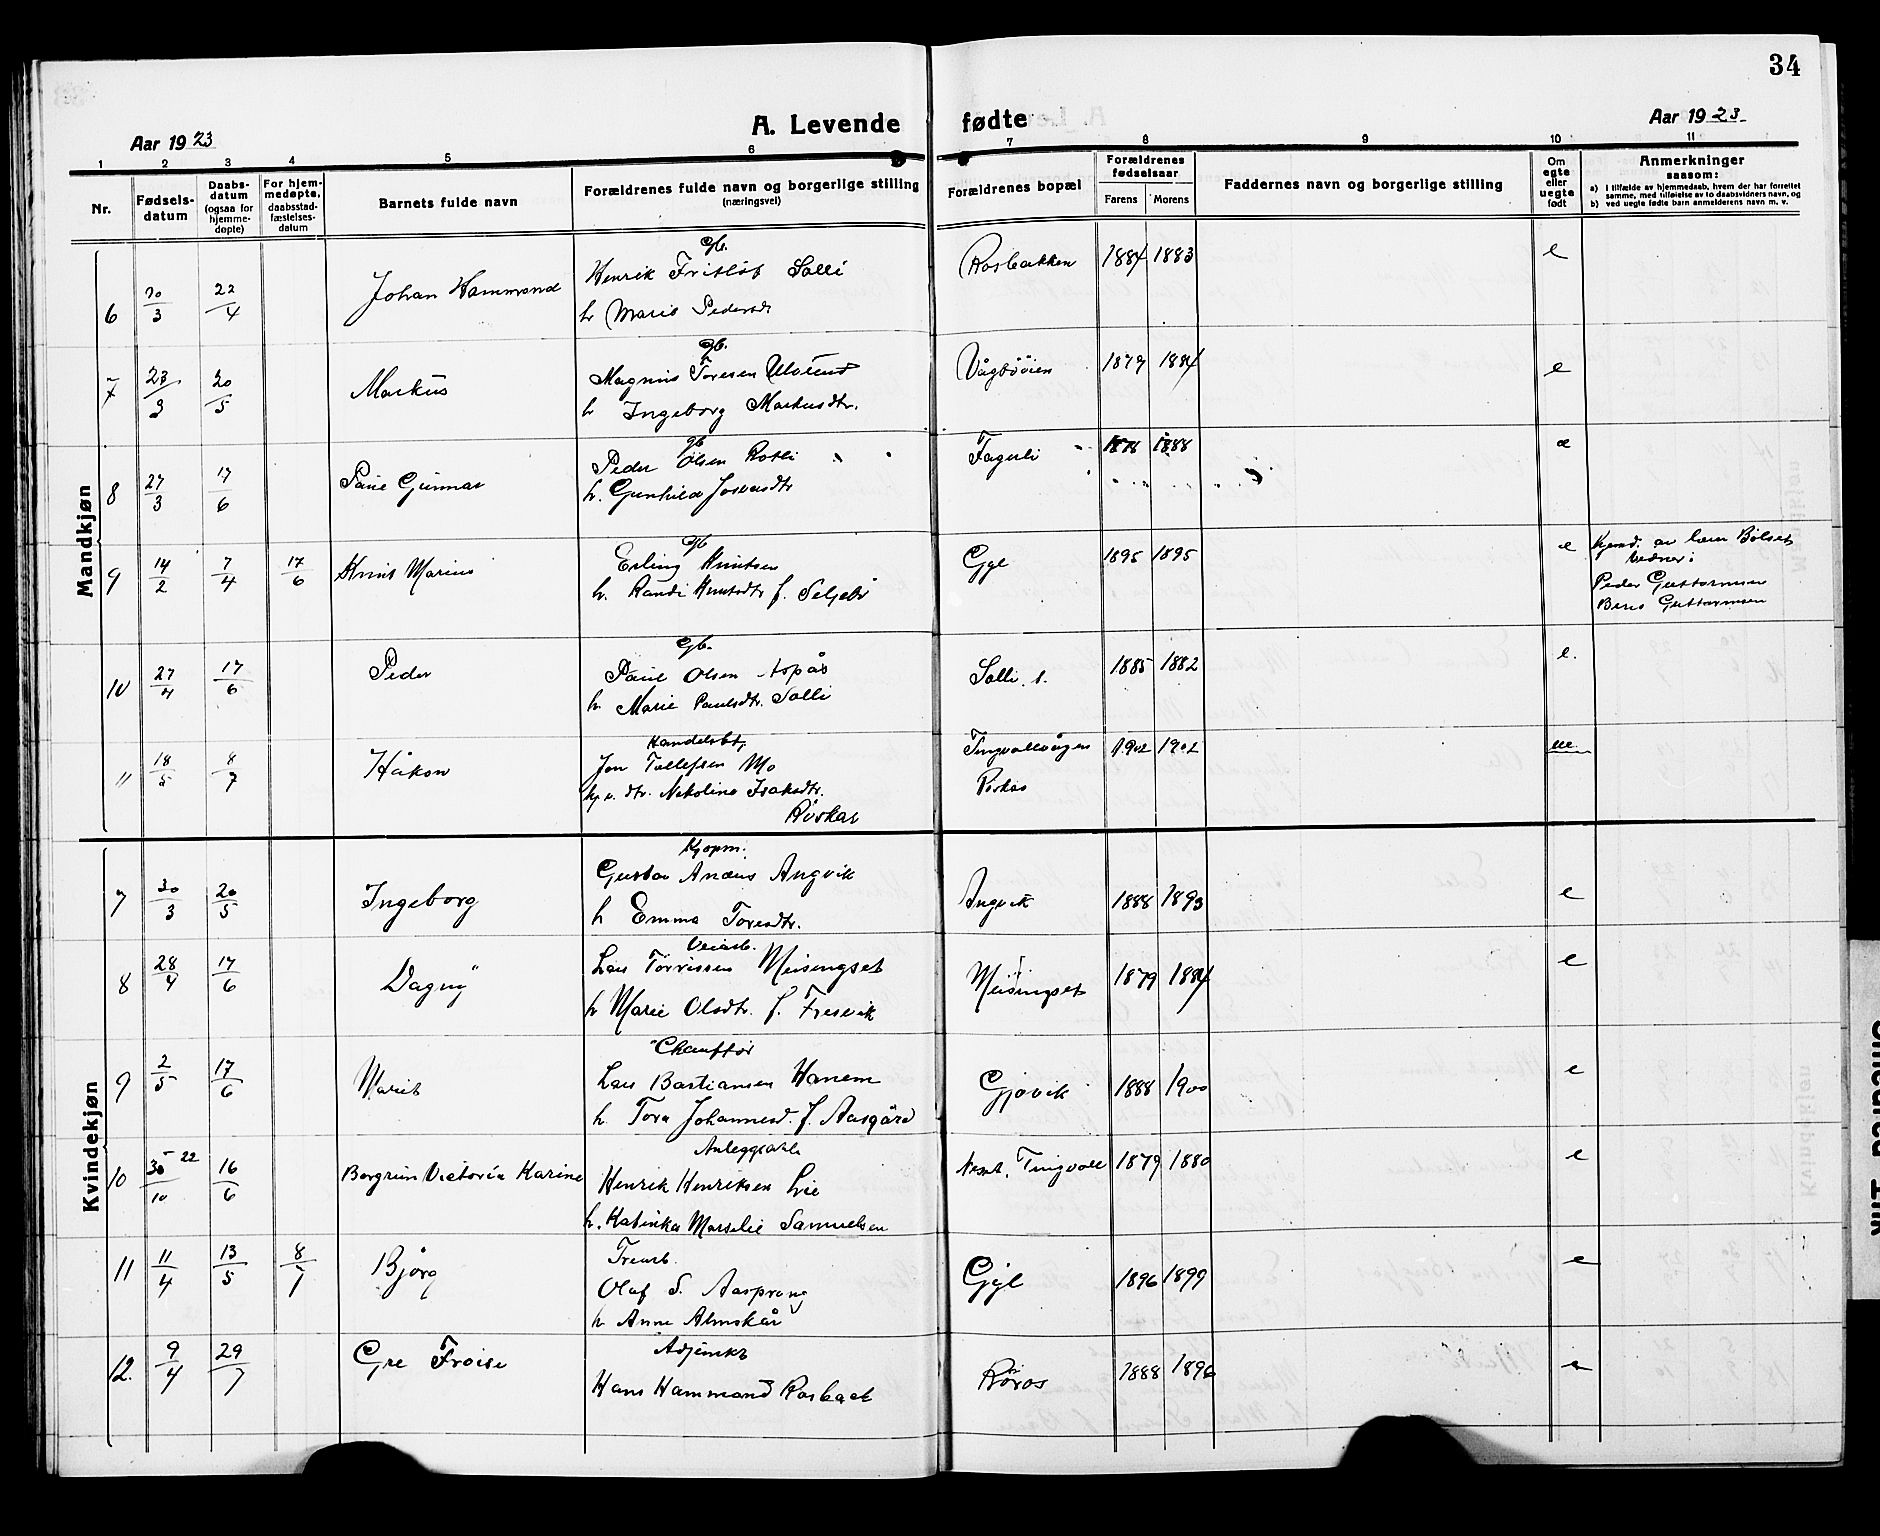 34
A. Levende fødte
Aar 1923
Aar 1923
1 2 3 4 5 6 7 8 9 10 11
Nr.
Fødsels-
datum
Daabs-
datum
(ogsaa for
hjemme-
døpte)
For hjem-
medøpte,
daabsstad-
fæstelses-
datum
Barnets fulde navn
Forældrenes fulde navn og borgerlige stilling
(næringsvei)
Forældrenes bopæl
Forældrenes
fødselsaar
Farens Morens
Faddernes navn og borgerlige stilling
Om
egte
eller
uegte
født
Anmerkninger
saasom:
a) I tilfælde av hjemmedaab, hvem der har forrettet
samme, med tilføielse av to daabsvidners navn, og
b) ved uegte fødte barn anmelderens navn m. v.
Mandkjøn
gb.
6 20/3 22/4 Johan Hammond Henrik Fritjof Solli Rosbakken 1884 1883 e
h Marie Pedersdr
gb.
7 23/3 20/5 Markus Magnus Toresen Ulvund Vågbøien 1879 1884 e
h Ingeborg Markusdtr.
gb
8 27/3 17/6 Paul Gunnar Peder Olsen Rotli Fagerli 1878 1888 e
h. Gunhild Josevasdtr
gb
9 14/2 7/4 17/6 Knut Marius Erling Knutsen Gyl 1895 1895 e
h. Randi Knutsdtr f. Seljebø
Hjemd. av lærer Bolset
vidner:
Peder Guttormsen
Guttormsen
gb.
10 27/4 17/6 Peder Paul Olsen Aspås Solli 1885 1882 e.
h. Marie Paulsdtr. Solli
Handelsbt.
11 18/5 8/7 Håkon Jon Tollefsen Mo Tingvollvågen 1902 1902 ue.
dtr. Nikoline Isaksdtr. Røskar
Røskar
Kvindekjøn
Kjøpm.
7 30/3 20/5 Ingeborg Gustav Andreas Angvik Angvik 1888 1893 e
h Emma Toresdtr.
Veiarb.
8 28/4 17/6 Dagny Lars Torrissen Meisingset Meisingset 1879 1884 e
h Marie Olsdtr. f. Fresvik
Chauffør
9 2/5 17/6 Marit Lars Bastiansen Hanem Gjøvik 1888 1900 e
h. Tora Johannesd. f. Aasgård
10 30/10 22 16/6 Borgrun Victoria Karine Henrik Henriksen Lie Tingvoll 1879 1880 e
h. Katinka Marselie Samuelsen
Trearb.
11 11/4 13/5 8/7 Bjørg Olaf S. Aasprong Gyl 1896 1899 e
h Anne Almskår
Adjunkt
12. 9/4 29/7 Gre Froise Hans Hammond Rosbach Røros 1888 1896 e